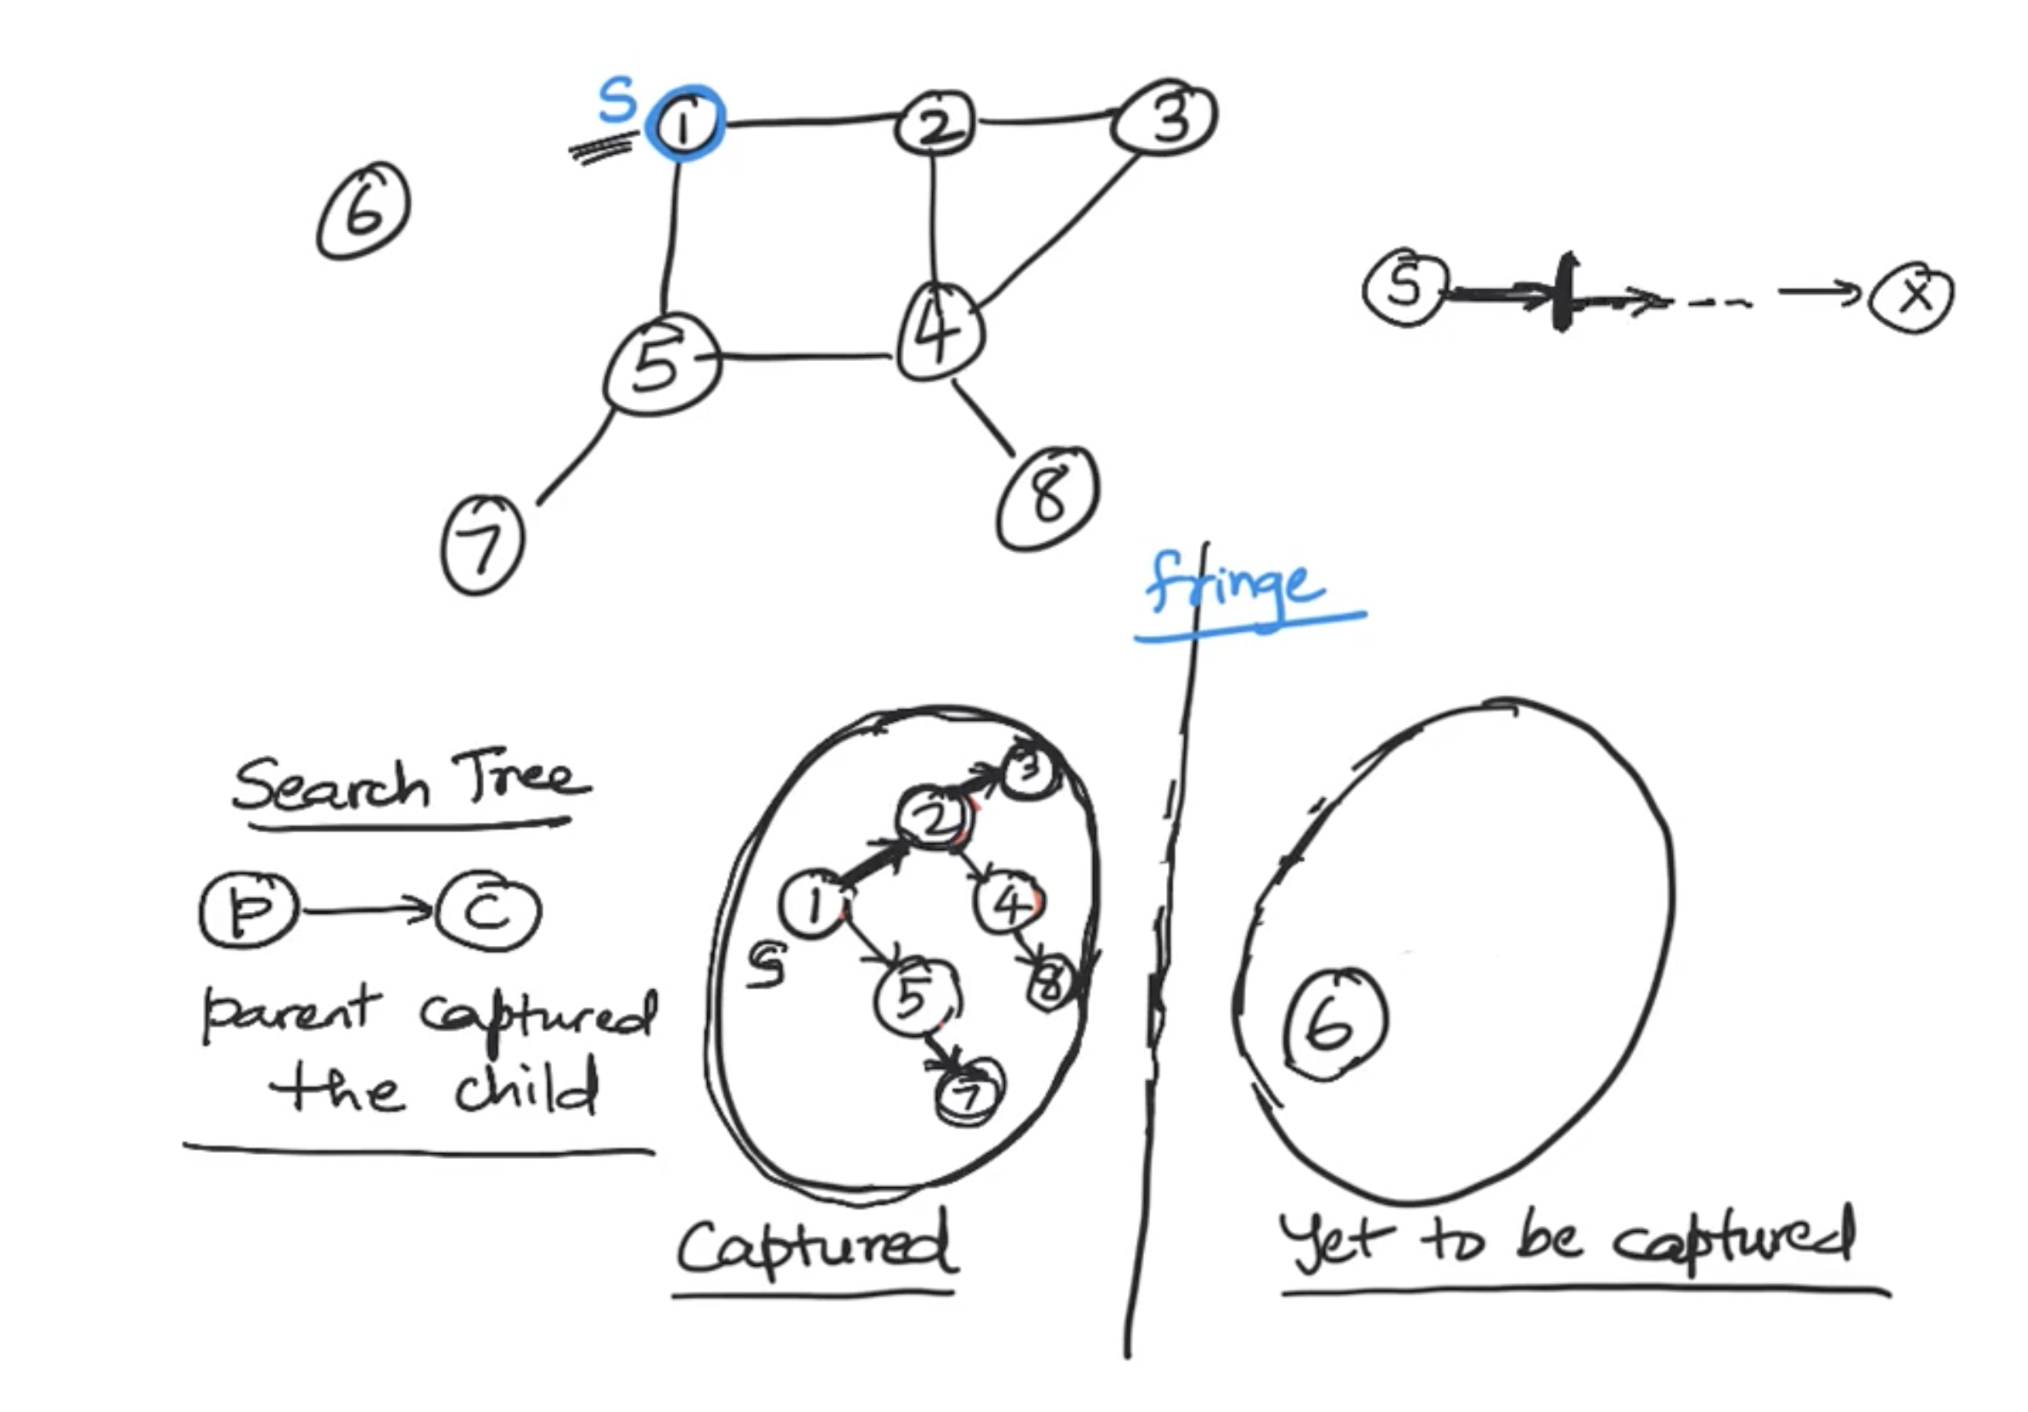 S
1
2
3
6
5
4
S
X
8
7
fringe
Search Tree
P
C
parent captured
the child
3
2
1
4
S
5
8
7
6
Captured
Yet to be captured